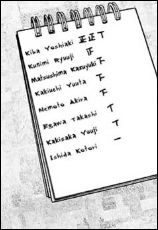 Kiba Yoshiaki 正正丅
Kunimi Ryuuji 正
Matsushima Kazuyuki 下
Kakiuchi Yuuta 下
Nemoto Akira 下
Egawa Takashi 丅
Kakizaka Yuuji 丅
Ishida Kotori 一